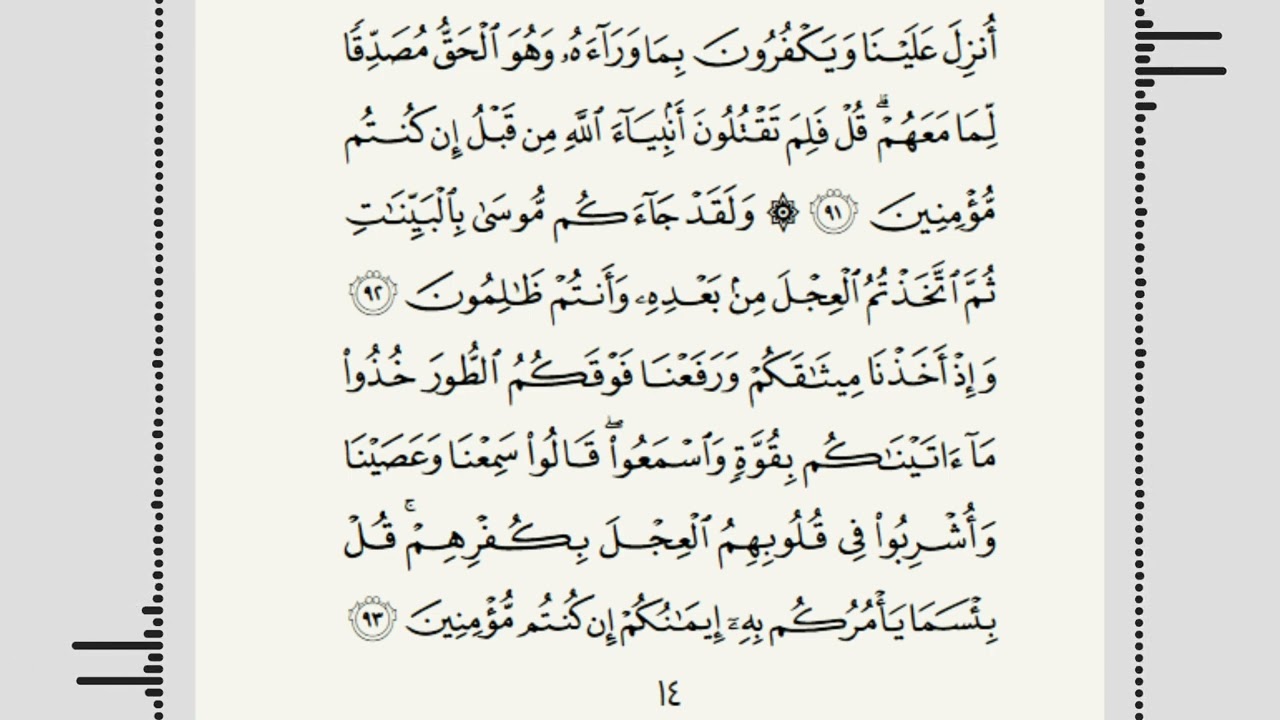 أُنزِلَ عَلَيۡنَا وَيَكۡفُرُونَ بِمَا وَرَآءَهُۥ وَهُوَ ٱلۡحَقُّ مُصَدِّقٗا
لِّمَا مَعَهُمۡۗ قُلۡ فَلِمَ تَقۡتُلُونَ أَنۢبِيَآءَ ٱللَّهِ مِن قَبۡلُ إِن كُنتُم
مُّؤۡمِنِينَ ٩١ ۞ وَلَقَدۡ جَآءَكُم مُّوسَىٰ بِٱلۡبَيِّنَٰتِ
ثُمَّ ٱتَّخَذۡتُمُ ٱلۡعِجۡلَ مِنۢ بَعۡدِهِۦ وَأَنتُمۡ ظَٰلِمُونَ ٩٢
وَإِذۡ أَخَذۡنَا مِيثَٰقَكُمۡ وَرَفَعۡنَا فَوۡقَكُمُ ٱلطُّورَ خُذُواْ
مَآ ءَاتَيۡنَٰكُم بِقُوَّةٖ وَٱسۡمَعُواْۖ قَالُواْ سَمِعۡنَا وَعَصَيۡنَا
وَأُشۡرِبُواْ فِي قُلُوبِهِمُ ٱلۡعِجۡلَ بِكُفۡرِهِمۡۚ قُلۡ
بِئۡسَمَا يَأۡمُرُكُم بِهِۦٓ إِيمَٰنُكُمۡ إِن كُنتُم مُّؤۡمِنِينَ ٩٣
١٤